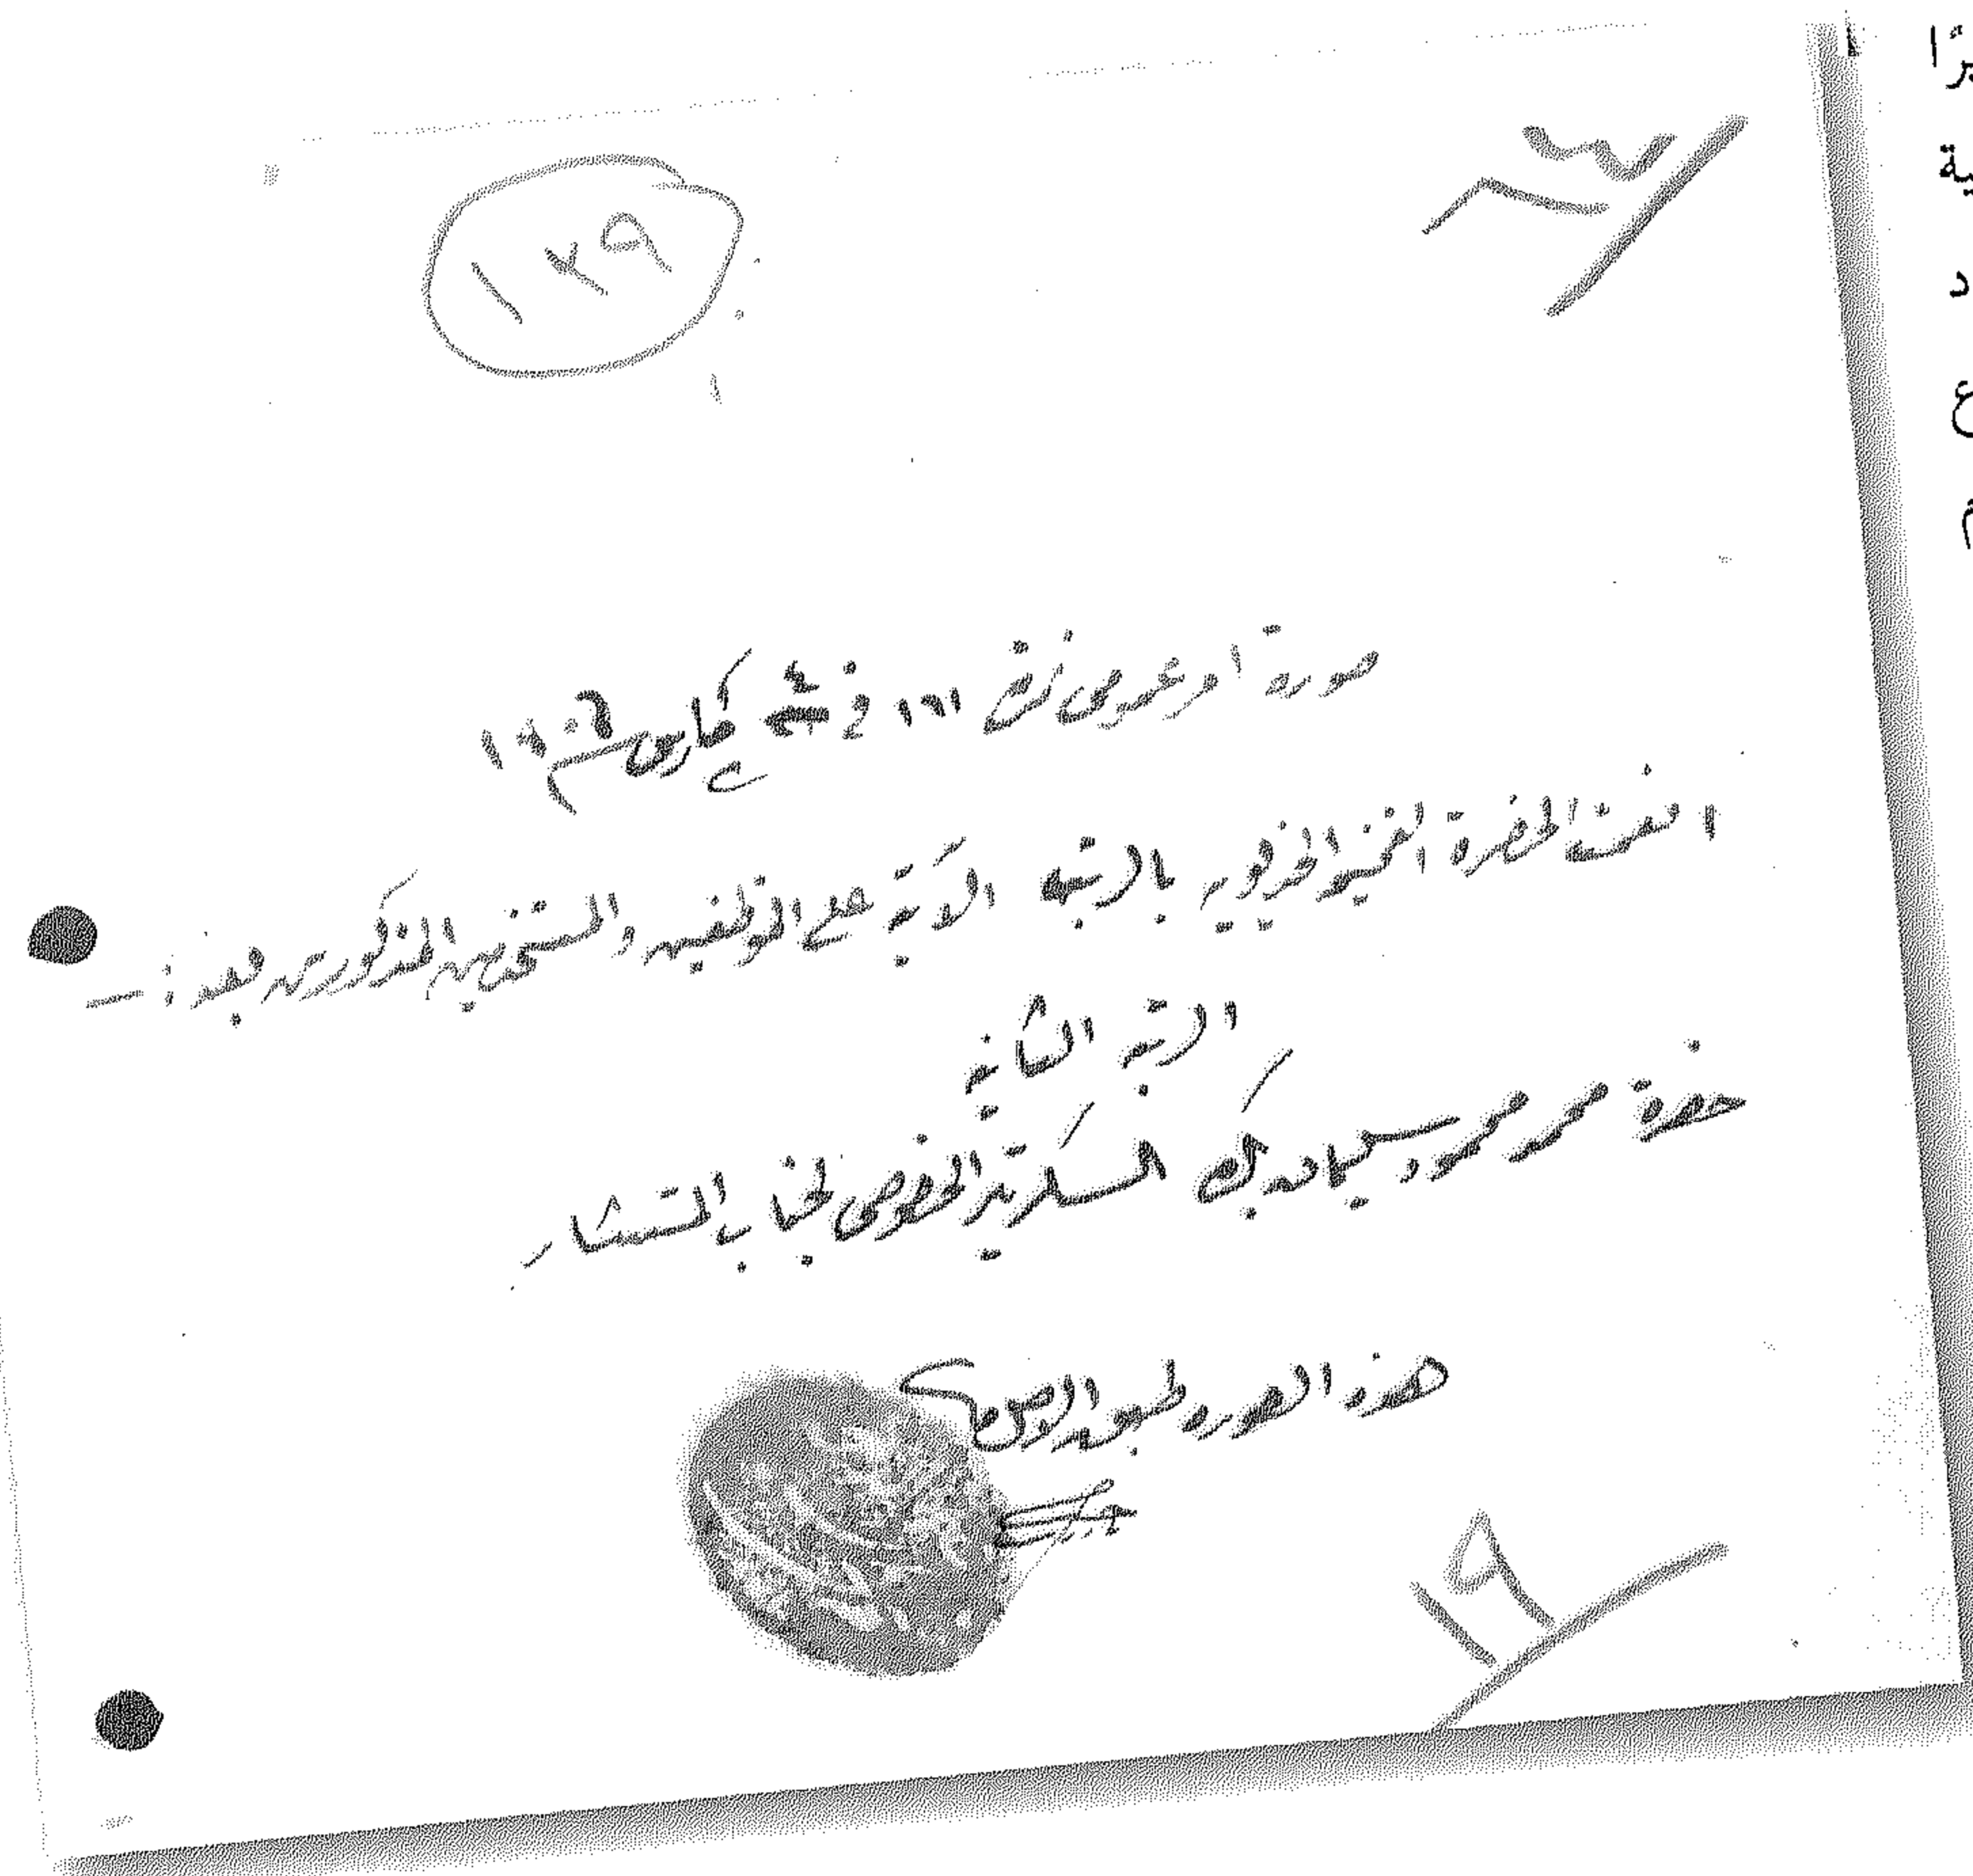 ١٢٩
صورة امر عمومى نمرة ١٦١ فى ٤ مارس سنة ١٩٠٦
انعمت الحضرة الفخيمه الخديويه بالرتبه الآتية على الموظفين والمستخدمين المذكورين بعد :ـ
الرتبه الثانيه
حضرة محمد محمود سليمان بك السكرتير الخصوصى لجناب المستشار
هذه الصوره طبق الاصل
١٩